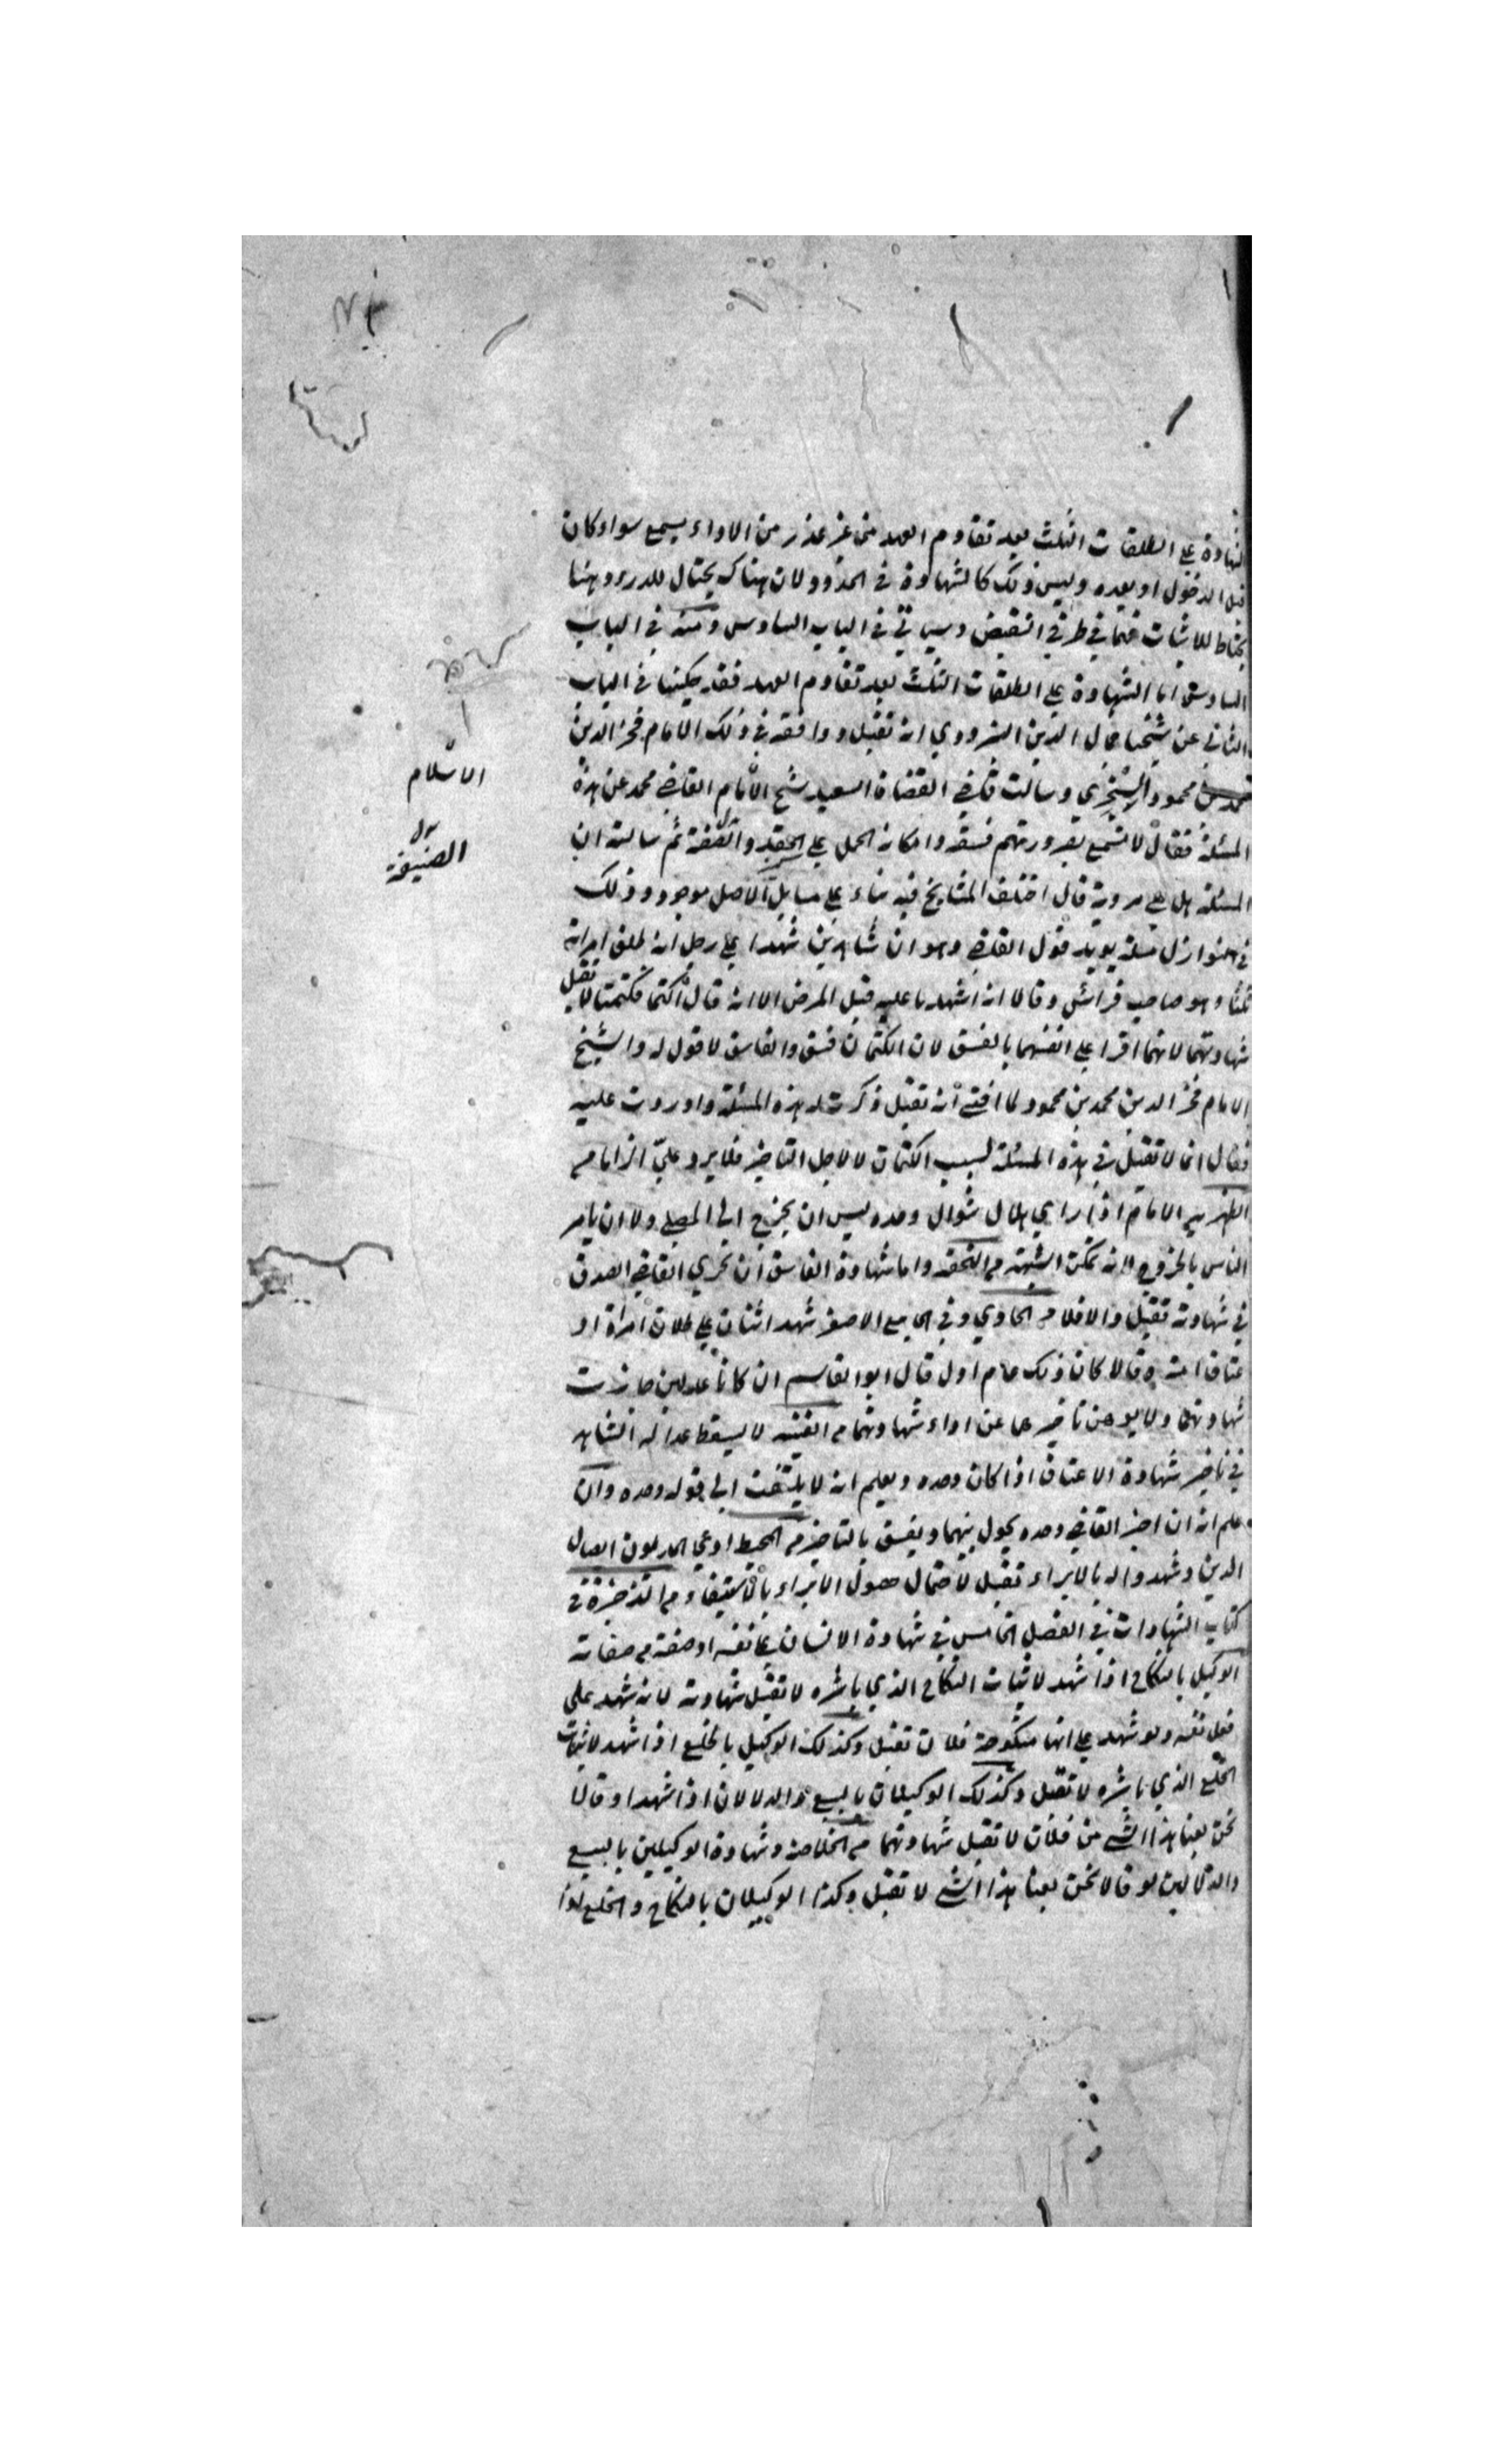 الشهادة على الطلقات الثلث بعد تقادم العهد من غير عذر من الاداء يسمع سواء كان
قبل الدخول او بعده وليس ذلك كالشهادة في الحدود لان هناك يحتال للدرء وهنا
يحتاط للاثبات فهما في طرفي النقيض وسياتي في الباب السادس ومنه في الباب
السادس اما الشهادة على الطلقات الثلث بعد تقادم العهد فقد حكينا في الباب
الثاني عن شيخنا جمال الدين البزدوي انه تقبل ووافقه في ذلك الامام فخر الدين
محمد بن محمود وسالت قاضي القضاة السعيد شيخ الامام القاضي محمد عن هذه
الاسلام
المسئلة فقال لا تسمع لضرورتهم فسقه وامكان الحمل على ثم سالته ان
الضنيفة
المسئلة هل هي مروية قال اختلف المشايخ فيه بناء على مسايل الاصل موجود وذلك
في النوازل مسئلة يويد قول القاضي وهو ان شاهدين شهدا على رجل انه طلق امراته
ثلثا وهو صاحب فراش وقالا انه اشهدنا عليه قبل المرض الا انه قال اكتما فكتمنا لا تقبل
شهادتهما لانهما اقرا على انفسهما بالفسق لان الكتمان فسق والفاسق لا قول له والشيخ
الامام فخر الدين محمد بن محمود لما افتى انه تقبل ذكرت له هذه المسئلة واوردت عليه
فقال انما لا تقبل في هذه المسئلة لسبب الكتمان لا لاجل التاخير فلا يرد علي
الامام اذا راى هلال شوال وحده ليس ان يخرج الى المصلى ولا ان يامر
الناس بالخروج لانه تمكن الشبهة م التحفة واما شهادة الفاسق ان تحرى القاضي الصدق
في شهادته تقبل والا فلا م الحاوي وفي الجامع الاصغر شهد اثنان على طلاق امراة او
عتاق امة وقالا كان ذلك عام اول قال ابو القاسم ان كانا عدلين جازت
شهادتهما ولا يوهن تاخيرهما عن اداء شهادتهما م القنية لا يسقط عدالة الشاهد
في تاخير شهادة الاعتاق اذا كان وحده ويعلم انه لا يلتفت الى قوله وحده وان
علم انه ان اخبر القاضي وحده يحول بينهما ويفسق بالتاخير م المحيط ادعى المديون ايصال
الدين وشهدوا له بالابراء تقبل لاحتمال حصول الابراء بالاستيفاء م الذخيرة في
كتاب الشهادات في الفصل الخامس في شهادة الانسان على نفسه او صفة م صفاته
الوكيل بالنكاح اذا شهد لاثبات النكاح الذي باشره لا تقبل شهادته لانه شهد على
فعل نفسه ولو شهد على انها منكوحة فلان تقبل وكذلك الوكيل بالخلع اذا شهد لاثبات
الخلع الذي باشره لا تقبل وكذلك الوكيلان بالبيع والدلالان اذا شهدا وقالا
نحن بعنا هذا الشي من فلان لا تقبل شهادتهما م الخلاصة وشهادة الوكيلين بالبيع
والدلالين لو قالا نحن بعنا هذا الشي لا تقبل وكذا الوكيلان بالنكاح والخلع اذا